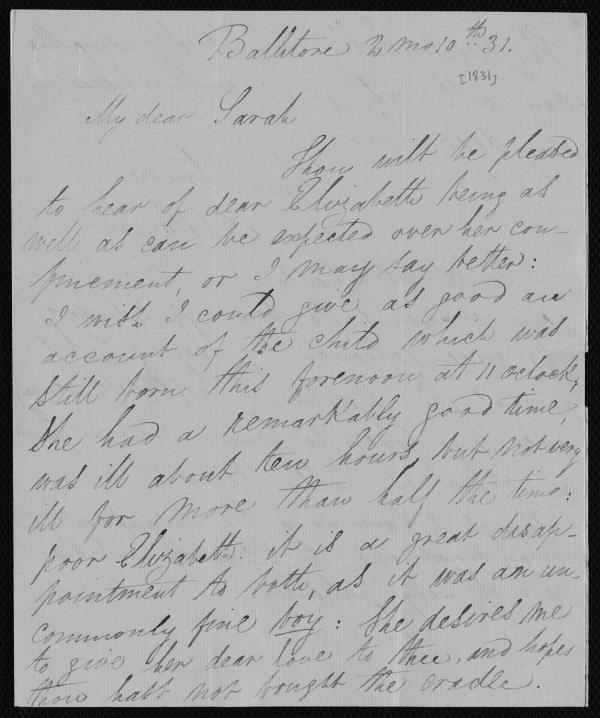 Ballitore 2 mo 10th 31.
[1831]
My dear Sarah
Thou wilt be pleased
to hear of dear Elizabeth being as
well as can be expected over her con-
finement, or I may say better:
I wish I could give as good an
account of the child which was
still born this forenoon at 11 oclock,
She had a remarkably good time,
was ill about ten hours, but not very
ill for more than half the time:
poor Elizabeth. it is a great disap-
pointment to both, as it was an un-
commonly fine boy: She desires me
to give her dear love to thee, and hopes
thou hast not bought the cradle.